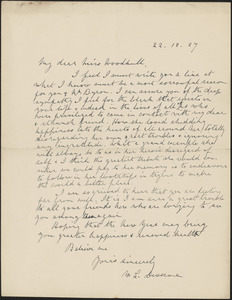 22. 12. 27
My dear Miss Woodhull,
I feel I must write you a line at
what I know must be a most sorrowful season
for you & Mr Byron. I can assure you of the deep
sympathy I feel for the blank that exists in
your life & indeed in the lives of all of us who
were privileged to come in contact with my dear
& esteemed friend. How she loved shedding
happiness into the hearts of all around her, totally
disregarding her own great troubles & ignoring
any ingratitude. What a grand example that
will always be to us in her heroic disregard of
self & I think the greatest tribute she would like
when we could pay to her memory is to endeavour
to follow in her footsteps in trying to make
this world a better place.
I am so grieved to hear that you are feeling
far from well. It is I am sure, a great trouble
to all your friends who are longing to see
you among them again.
Hoping that the New Year may bring
you greater happiness & renewed health
Believe me
Yours sincerely